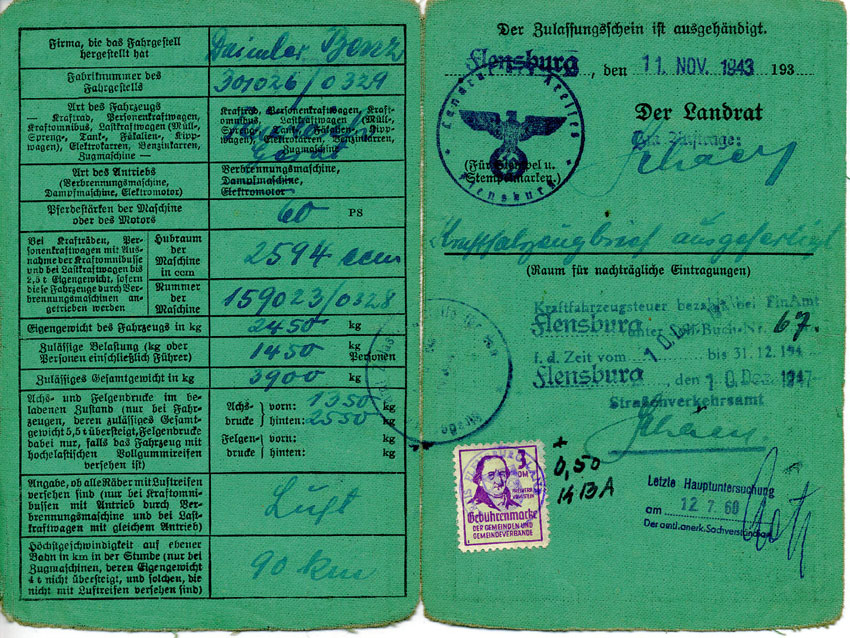 Firma, die das Fahrgestell
hergestellt hat
Daimler Benz
Fabriknummer des
Fahrgestells
301026/0329
Art des Fahrzeugs
— Kraftrad, Personenkraftwagen,
Kraftomnibus, Lastkraftwagen (Müll-,
Spreng-, Tank-, Fäkalien-, Kipp-
wagen), Elektrokarren, Benzinkarren,
Zugmaschine —
Kraftrad, Personenkraftwagen, Kraft-
omnibus, Lastkraftwagen (Müll-,
Spreng-, Tank-, Fäkalien-, Kipp-
wagen), Elektrokarren, Benzinkarren,
Zugmaschine
Art des Antriebs
(Verbrennungsmaschine,
Dampfmaschine, Elektromotor)
Verbrennungsmaschine,
Dampfmaschine,
Elektromotor
Pferdestärken der Maschine
oder des Motors
60 PS
Bei Krafträdern, Per-
sonenkraftwagen mit Aus-
nahme der Kraftomnibusse
und bei Lastkraftwagen bis
2,5 t Eigengewicht, sofern
diese Fahrzeuge durch Ver-
brennungsmaschinen an-
getrieben werden
Hubraum
der
Maschine
in ccm
2594 ccm
Nummer
der
Maschine
159023/0328
Eigengewicht des Fahrzeugs in kg
2450 kg
Zulässige Belastung (kg oder
Personen einschließlich Führer)
1450 kg
Personen
Zulässiges Gesamtgewicht in kg
3900 kg
Achs- und Felgendrucke im be-
ladenen Zustand (nur bei Fahr-
zeugen, deren zulässiges Gesamt-
gewicht 5,5 t übersteigt, Felgendrucke
dabei nur, falls das Fahrzeug mit
hochelastischen Vollgummireifen
versehen ist)
Achs- vorn: 1350 kg
drucke hinten: 2550 kg
Felgen- vorn: kg
drucke hinten: kg
Angabe, ob alle Räder mit Luftreifen
versehen sind (nur bei Kraftomni-
bussen mit Antrieb durch Ver-
brennungsmaschine und bei Last-
kraftwagen mit gleichem Antrieb)
Luft
Höchstgeschwindigkeit auf ebener
Bahn in km in der Stunde (nur bei
Zugmaschinen, deren Eigengewicht
4 t nicht übersteigt, und solchen, die
nicht mit Luftreifen versehen sind)
90 km
Der Zulassungsschein ist ausgehändigt.
Flensburg, den 11. NOV. 1943 193
Der Landrat
Im Auftrage:
(Für Stempel u.
Stempelmarken.)
Flensburg
Kraftfahrzeugbrief ausgefertigt
(Raum für nachträgliche Eintragungen)
Kraftfahrzeugsteuer bezahlt bei FinAmt
Flensburg unter Soll-Buch-Nr. 67.
f. d. Zeit vom bis 31.12.194
Flensburg, den 10. Dez. 1947
Straßenverkehrsamt
3
DM
Gebührenmarke
DER GEMEINDEN UND
GEMEINDEVERBÄNDE
+
0,50
Letzte Hauptuntersuchung
am 12.7.60
Der amtl. anerk. Sachverständige